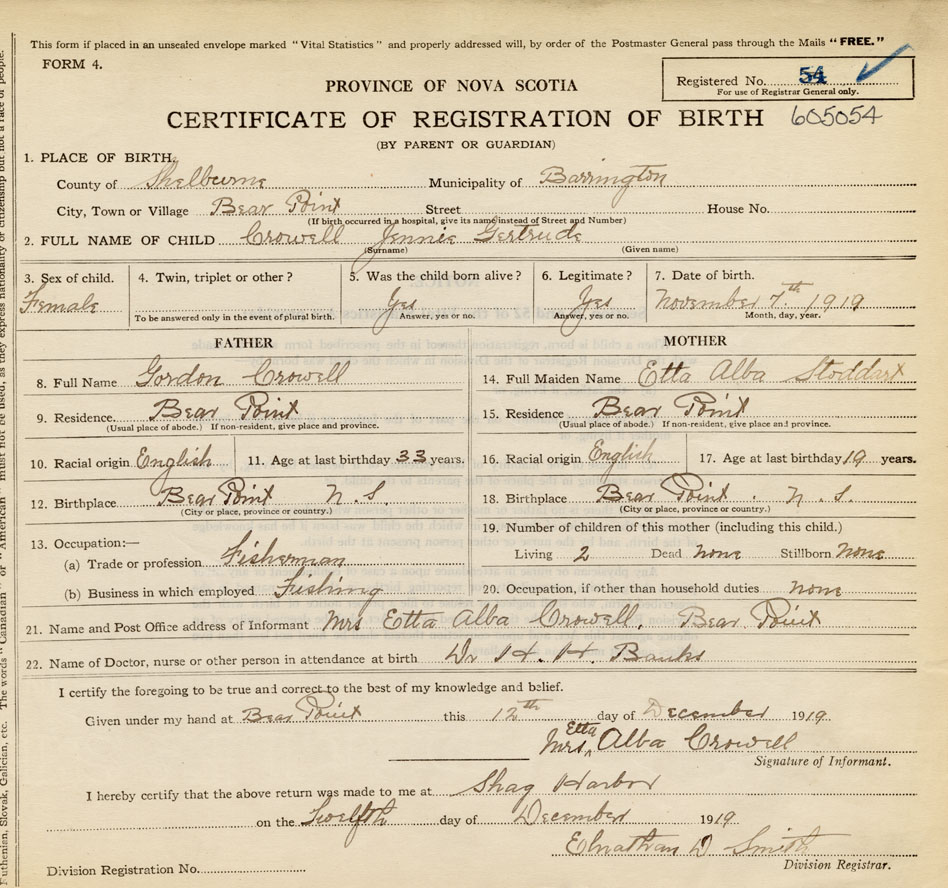 This form if placed in an unsealed envelope marked "Vital Statistics" and properly addressed will, by order of the Postmaster General pass through the Mails "FREE."
FORM 4.
Registered No. 54
For use of Registrar General only.
PROVINCE OF NOVA SCOTIA
CERTIFICATE OF REGISTRATION OF BIRTH 605054
(BY PARENT OR GUARDIAN)
1. PLACE OF BIRTH,
County of Shelburne Municipality of Barrington
City, Town or Village Bear Point Street House No.
(If birth occurred in a hospital, give its name instead of Street and Number)
2. FULL NAME OF CHILD Crowell Jennie Gertrude
(Surname) (Given name)
3. Sex of child. 4. Twin, triplet or other? 5. Was the child born alive? 6. Legitimate? 7. Date of birth.
Female Yes Yes November 7th 1919
To be answered only in the event of plural birth. Answer, yes or no. Answer, yes or no. Month, day, year.
FATHER MOTHER
8. Full Name Gordon Crowell 14. Full Maiden Name Etta Alba Stoddart
9. Residence Bear Point 15. Residence Bear Point
(Usual place of abode.) If non-resident, give place and province. (Usual place of abode.) If non-resident, give place and province.
10. Racial origin English 11. Age at last birthday 33 years. 16. Racial origin English 17. Age at last birthday 19 years.
12. Birthplace Bear Point N.S. 18. Birthplace Bear Point. N.S.
(City or place, province or country.) (City or place, province or country.)
13. Occupation:— 19. Number of children of this mother (including this child.)
(a) Trade or profession Fisherman Living 2 Dead none Stillborn none
(b) Business in which employed Fishing 20. Occupation, if other than household duties none
21. Name and Post Office address of Informant Mrs Etta Alba Crowell, Bear Point
22. Name of Doctor, nurse or other person in attendance at birth Dr H. H. Banks
I certify the foregoing to be true and correct to the best of my knowledge and belief.
Given under my hand at Bear Point this 12th day of December 1919.
Mrs Etta Alba Crowell
Signature of Informant.
I hereby certify that the above return was made to me at Shag Harbor
on the Twelfth day of December 1919.
Elnathan D Smith
Division Registrar.
Division Registration No.